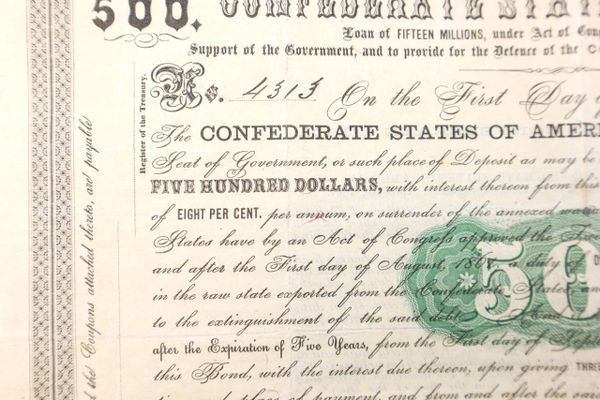 500. CONFEDERATE STATES
Loan of FIFTEEN MILLIONS, under Act of Con
Support of the Government, and to provide for the Defence of the
No. 4313 On the First Day of
The CONFEDERATE STATES OF AMER
Seat of Government, or such place of Deposit as may be
FIVE HUNDRED DOLLARS, with interest thereon from this
of EIGHT PER CENT. per annum, on surrender of the annexed
States have by an Act of Congress approved the
and after the First day of August, a duty of
in the raw state exported from the Confederate States, an
to the extinguishment of the said debt
after the Expiration of Five Years, from the First day of Sep
this Bond, with the interest due thereon, upon giving THREE
place of payment, and from and after the same
Register of the Treasury.
the Coupons attached thereto, are payable
50